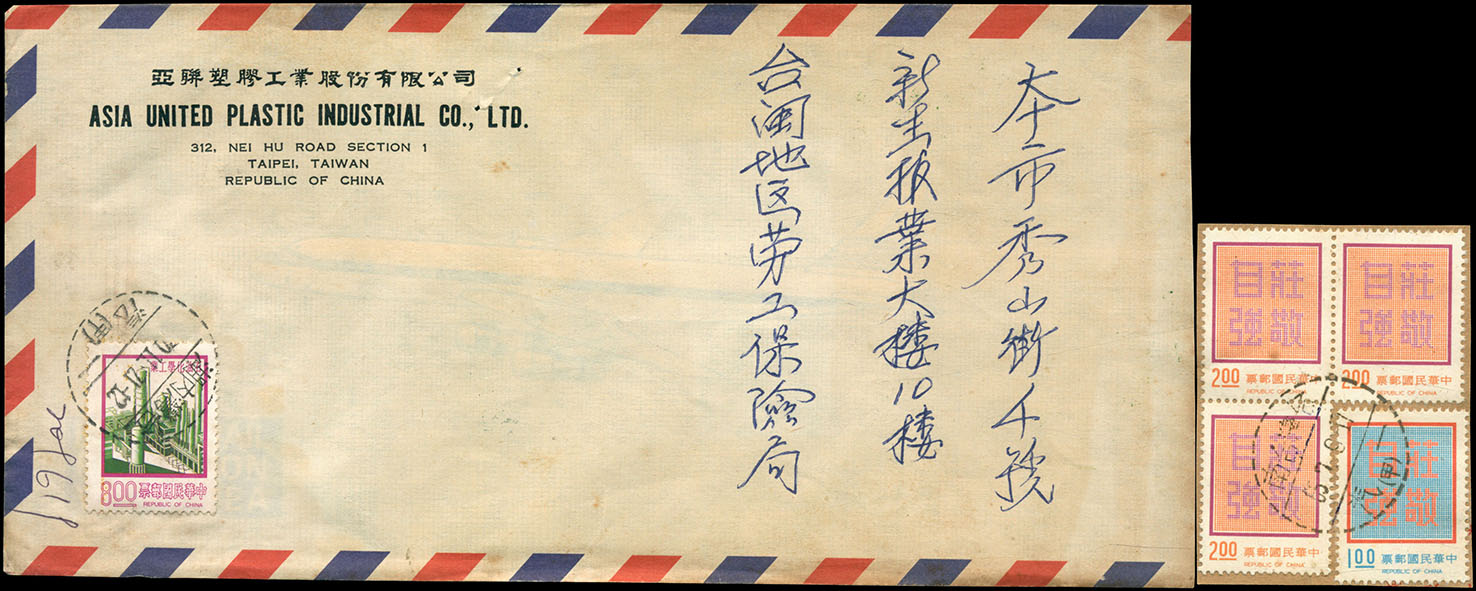 亞聯塑膠工業股份有限公司
ASIA UNITED PLASTIC INDUSTRIAL CO., LTD.
312, NEI HU ROAD SECTION 1
TAIPEI, TAIWAN
REPUBLIC OF CHINA
本市秀山街4號
新生报業大樓10樓
台閩地区劳工保險局
中華民國郵票 8.00
REPUBLIC OF CHINA
莊敬
自強
中華民國郵票 2.00
REPUBLIC OF CHINA
莊敬
自強
中華民國郵票 2.00
REPUBLIC OF CHINA
莊敬
自強
中華民國郵票 2.00
REPUBLIC OF CHINA
莊敬
自強
中華民國郵票 1.00
REPUBLIC OF CHINA